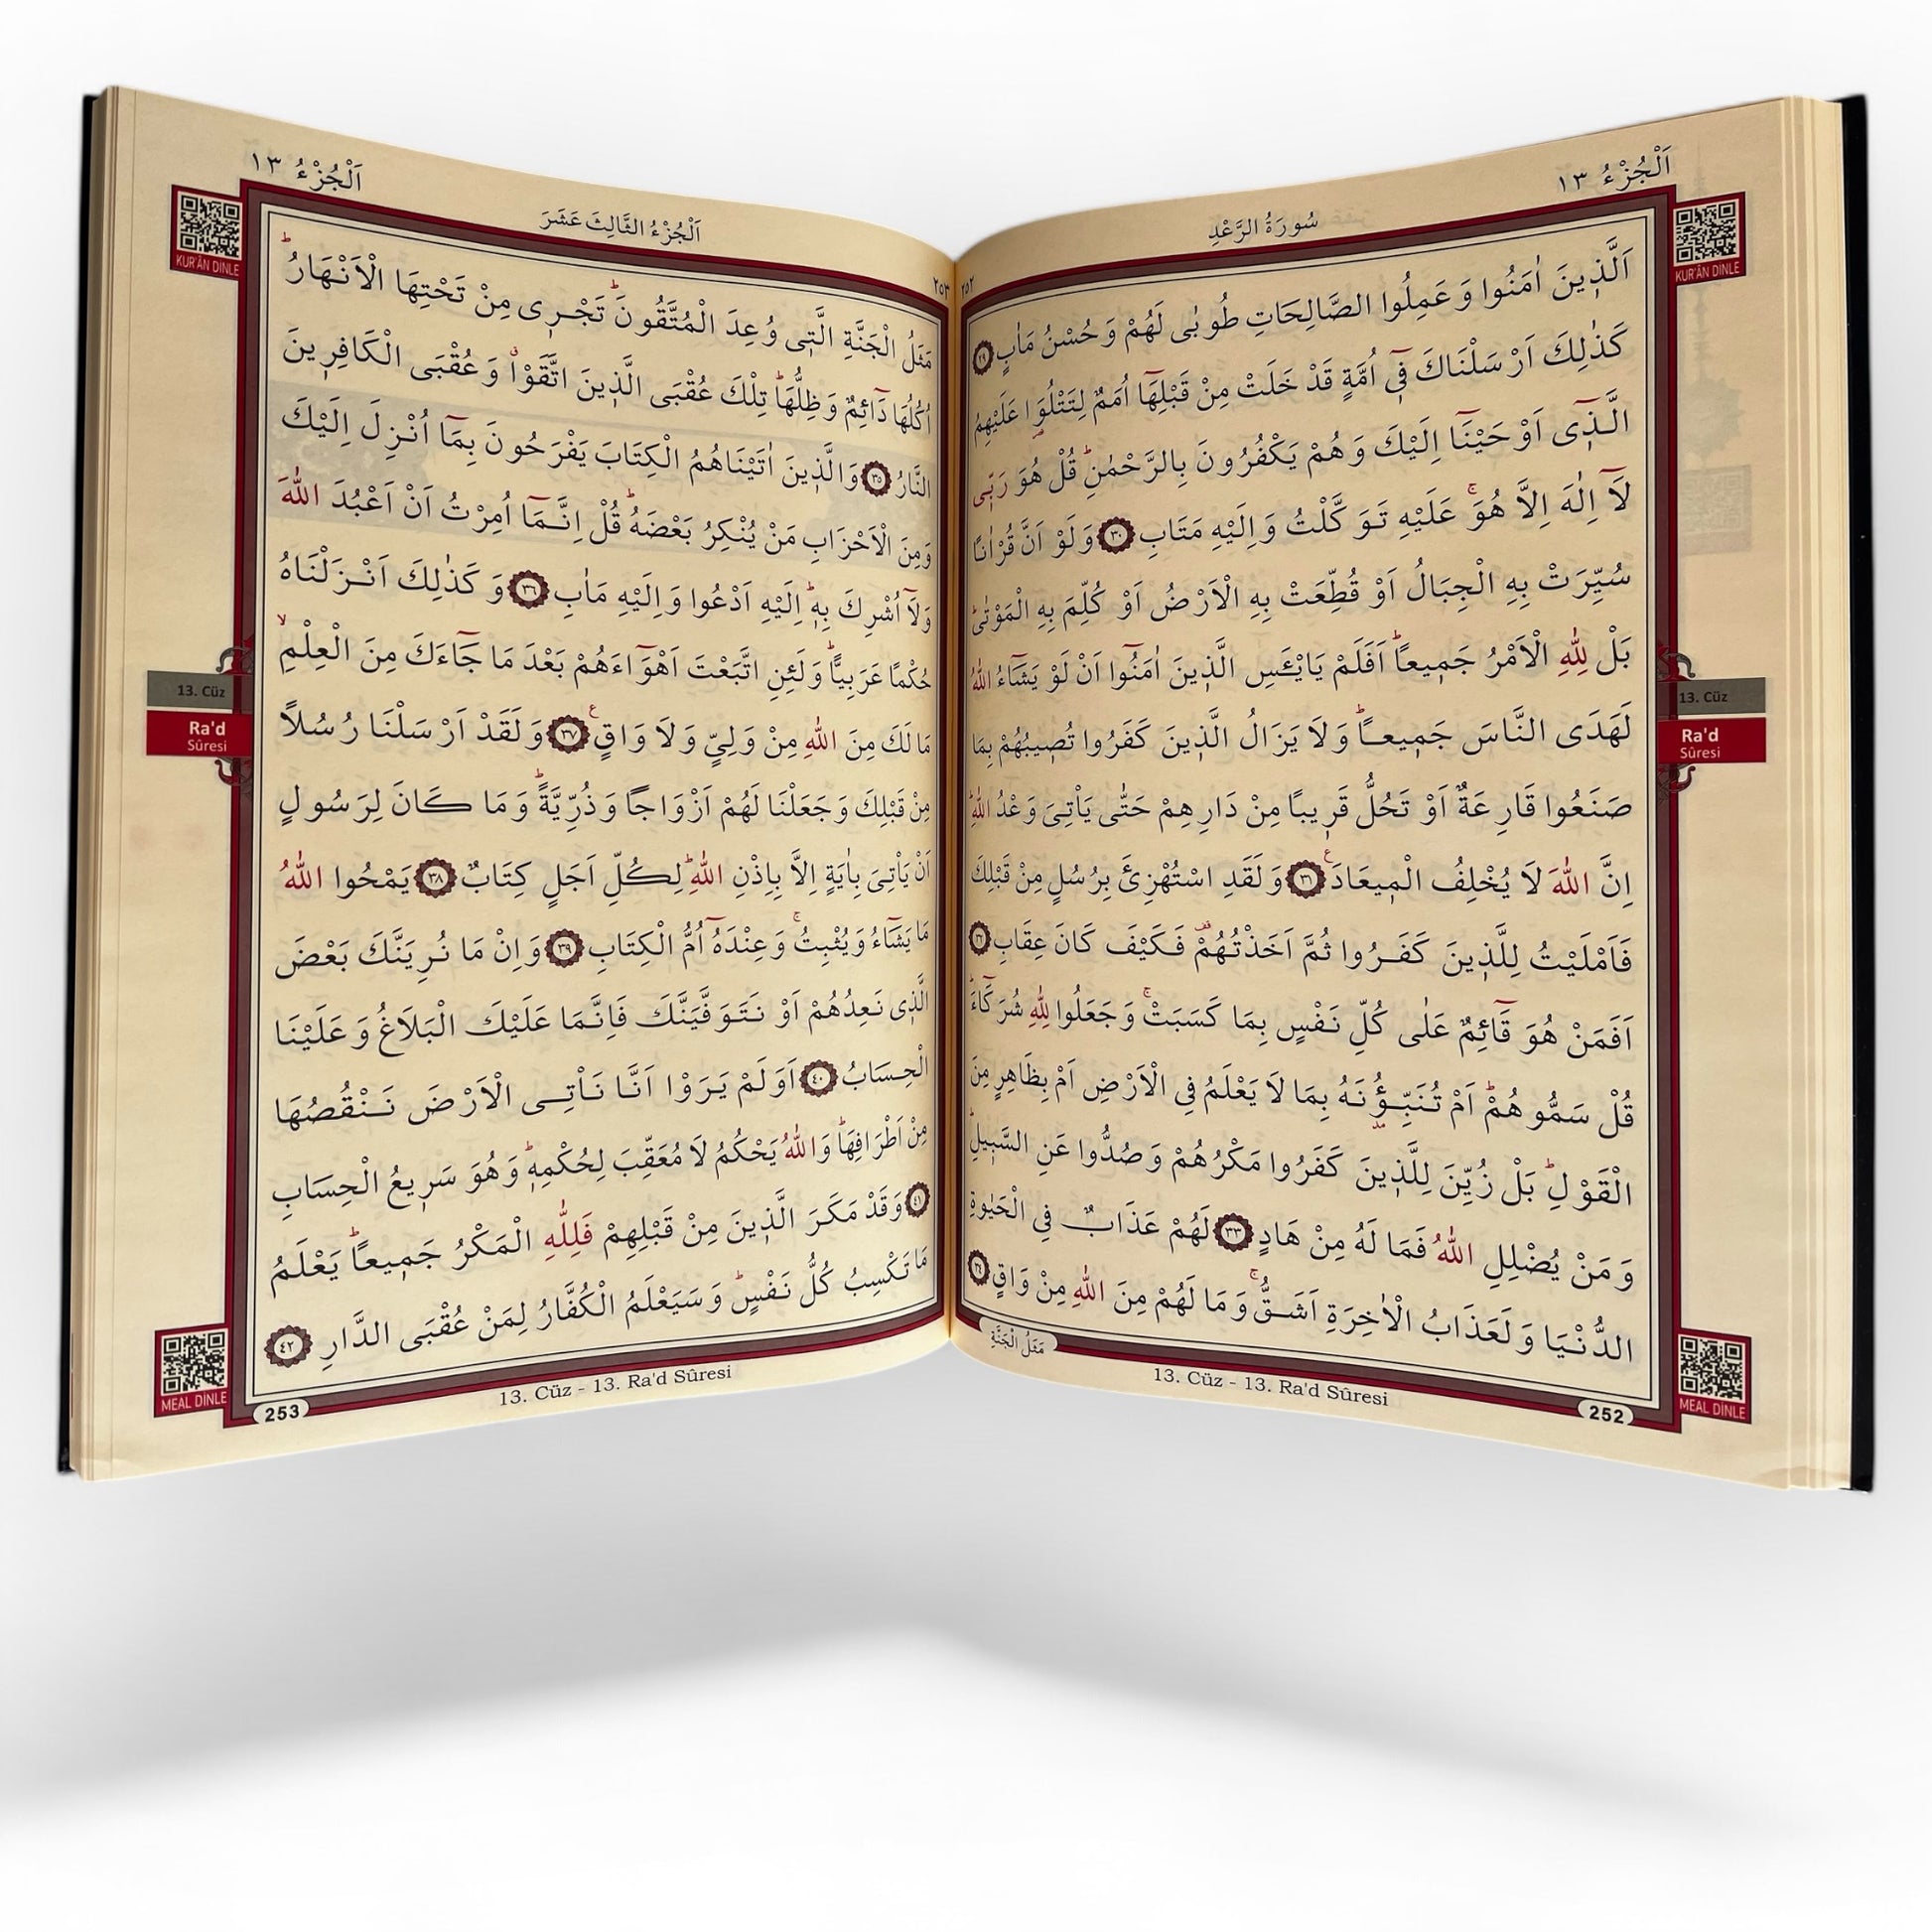 اَلْجُزْءُ ١٣
سُورَةُ الرَّعْدِ
٢٥٢
KUR'ÂN DİNLE
اَلَّذ۪ينَ اٰمَنُوا وَعَمِلُوا الصَّالِحَاتِ طُوبٰى لَهُمْ وَحُسْنُ مَاٰبٍ ﴿٢٩﴾
كَذٰلِكَ اَرْسَلْنَاكَ ف۪ٓي اُمَّةٍ قَدْ خَلَتْ مِنْ قَبْلِهَٓا اُمَمٌ لِتَتْلُوَ۬ا عَلَيْهِمُ
الَّذ۪ٓي اَوْحَيْنَٓا اِلَيْكَ وَهُمْ يَكْفُرُونَ بِالرَّحْمٰنِۜ قُلْ هُوَ رَبّ۪ي
لَٓا اِلٰهَ اِلَّا هُوَۚ عَلَيْهِ تَوَكَّلْتُ وَاِلَيْهِ مَتَابِ ﴿٣٠﴾ وَلَوْ اَنَّ قُرْاٰنًا
سُيِّرَتْ بِهِ الْجِبَالُ اَوْ قُطِّعَتْ بِهِ الْاَرْضُ اَوْ كُلِّمَ بِهِ الْمَوْتٰىۜ
بَلْ لِلّٰهِ الْاَمْرُ جَم۪يعًاۜ اَفَلَمْ يَايْـَٔسِ الَّذ۪ينَ اٰمَنُٓوا اَنْ لَوْ يَشَٓاءُ اللّٰهُ
لَهَدَى النَّاسَ جَم۪يعًاۜ وَلَا يَزَالُ الَّذ۪ينَ كَفَرُوا تُص۪يبُهُمْ بِمَا
صَنَعُوا قَارِعَةٌ اَوْ تَحُلُّ قَر۪يبًا مِنْ دَارِهِمْ حَتّٰى يَأْتِيَ وَعْدُ اللّٰهِۜ
اِنَّ اللّٰهَ لَا يُخْلِفُ الْم۪يعَادَ۟ ﴿٣١﴾ وَلَقَدِ اسْتُهْزِئَ بِرُسُلٍ مِنْ قَبْلِكَ
فَاَمْلَيْتُ لِلَّذ۪ينَ كَفَرُوا ثُمَّ اَخَذْتُهُمْ۠ فَكَيْفَ كَانَ عِقَابِ ﴿٣٢﴾
اَفَمَنْ هُوَ قَٓائِمٌ عَلٰى كُلِّ نَفْسٍ بِمَا كَسَبَتْۚ وَجَعَلُوا لِلّٰهِ شُرَكَٓاءَۜ
قُلْ سَمُّوهُمْۜ اَمْ تُنَبِّؤُ۫نَهُ بِمَا لَا يَعْلَمُ فِي الْاَرْضِ اَمْ بِظَاهِرٍ مِنَ
الْقَوْلِۜ بَلْ زُيِّنَ لِلَّذ۪ينَ كَفَرُوا مَكْرُهُمْ وَصُدُّوا عَنِ السَّب۪يلِۜ
وَمَنْ يُضْلِلِ اللّٰهُ فَمَا لَهُ مِنْ هَادٍ ﴿٣٣﴾ لَهُمْ عَذَابٌ فِي الْحَيٰوةِ
الدُّنْيَا وَلَعَذَابُ الْاٰخِرَةِ اَشَقُّۚ وَمَا لَهُمْ مِنَ اللّٰهِ مِنْ وَاقٍ ﴿٣٤﴾
13. Cüz
Ra'd
Sûresi
مَثَلُ الْجَنَّةِ
13. Cüz - 13. Ra'd Sûresi
252
MEAL DİNLE
اَلْجُزْءُ ١٣
اَلْجُزْءُ الثَّالِثَ عَشَرَ
٢٥٣
KUR'ÂN DİNLE
مَثَلُ الْجَنَّةِ الَّت۪ي وُعِدَ الْمُتَّقُونَۜ تَجْر۪ي مِنْ تَحْتِهَا الْاَنْهَارُۜ
اُكُلُهَا دَٓائِمٌ وَظِلُّهَاۜ تِلْكَ عُقْبَى الَّذ۪ينَ اتَّقَوْاۗ وَعُقْبَى الْكَافِر۪ينَ
النَّارُ ﴿٣٥﴾ وَالَّذ۪ينَ اٰتَيْنَاهُمُ الْكِتَابَ يَفْرَحُونَ بِمَٓا اُنْزِلَ اِلَيْكَ
وَمِنَ الْاَحْزَابِ مَنْ يُنْكِرُ بَعْضَهُۜ قُلْ اِنَّمَٓا اُمِرْتُ اَنْ اَعْبُدَ اللّٰهَ
وَلَٓا اُشْرِكَ بِه۪ۜ اِلَيْهِ اَدْعُوا وَاِلَيْهِ مَاٰبِ ﴿٣٦﴾ وَكَذٰلِكَ اَنْزَلْنَاهُ
حُكْمًا عَرَبِيًّاۜ وَلَئِنِ اتَّبَعْتَ اَهْوَٓاءَهُمْ بَعْدَ مَا جَٓاءَكَ مِنَ الْعِلْمِۙ
مَا لَكَ مِنَ اللّٰهِ مِنْ وَلِيٍّ وَلَا وَاقٍ۟ ﴿٣٧﴾ وَلَقَدْ اَرْسَلْنَا رُسُلًا
مِنْ قَبْلِكَ وَجَعَلْنَا لَهُمْ اَزْوَاجًا وَذُرِّيَّةًۜ وَمَا كَانَ لِرَسُولٍ
اَنْ يَأْتِيَ بِاٰيَةٍ اِلَّا بِاِذْنِ اللّٰهِۜ لِكُلِّ اَجَلٍ كِتَابٌ ﴿٣٨﴾ يَمْحُوا اللّٰهُ
مَا يَشَٓاءُ وَيُثْبِتُۚ وَعِنْدَهُٓ اُمُّ الْكِتَابِ ﴿٣٩﴾ وَاِنْ مَا نُرِيَنَّكَ بَعْضَ
الَّذ۪ي نَعِدُهُمْ اَوْ نَتَوَفَّيَنَّكَ فَاِنَّمَا عَلَيْكَ الْبَلَاغُ وَعَلَيْنَا
الْحِسَابُ ﴿٤٠﴾ اَوَلَمْ يَرَوْا اَنَّا نَأْتِي الْاَرْضَ نَنْقُصُهَا
مِنْ اَطْرَافِهَاۜ وَاللّٰهُ يَحْكُمُ لَا مُعَقِّبَ لِحُكْمِه۪ۜ وَهُوَ سَر۪يعُ الْحِسَابِ
﴿٤١﴾ وَقَدْ مَكَرَ الَّذ۪ينَ مِنْ قَبْلِهِمْ فَلِلّٰهِ الْمَكْرُ جَم۪يعًاۜ يَعْلَمُ
مَا تَكْسِبُ كُلُّ نَفْسٍۜ وَسَيَعْلَمُ الْكُفَّارُ لِمَنْ عُقْبَى الدَّارِ ﴿٤٢﴾
13. Cüz
Ra'd
Sûresi
13. Cüz - 13. Ra'd Sûresi
253
MEAL DİNLE